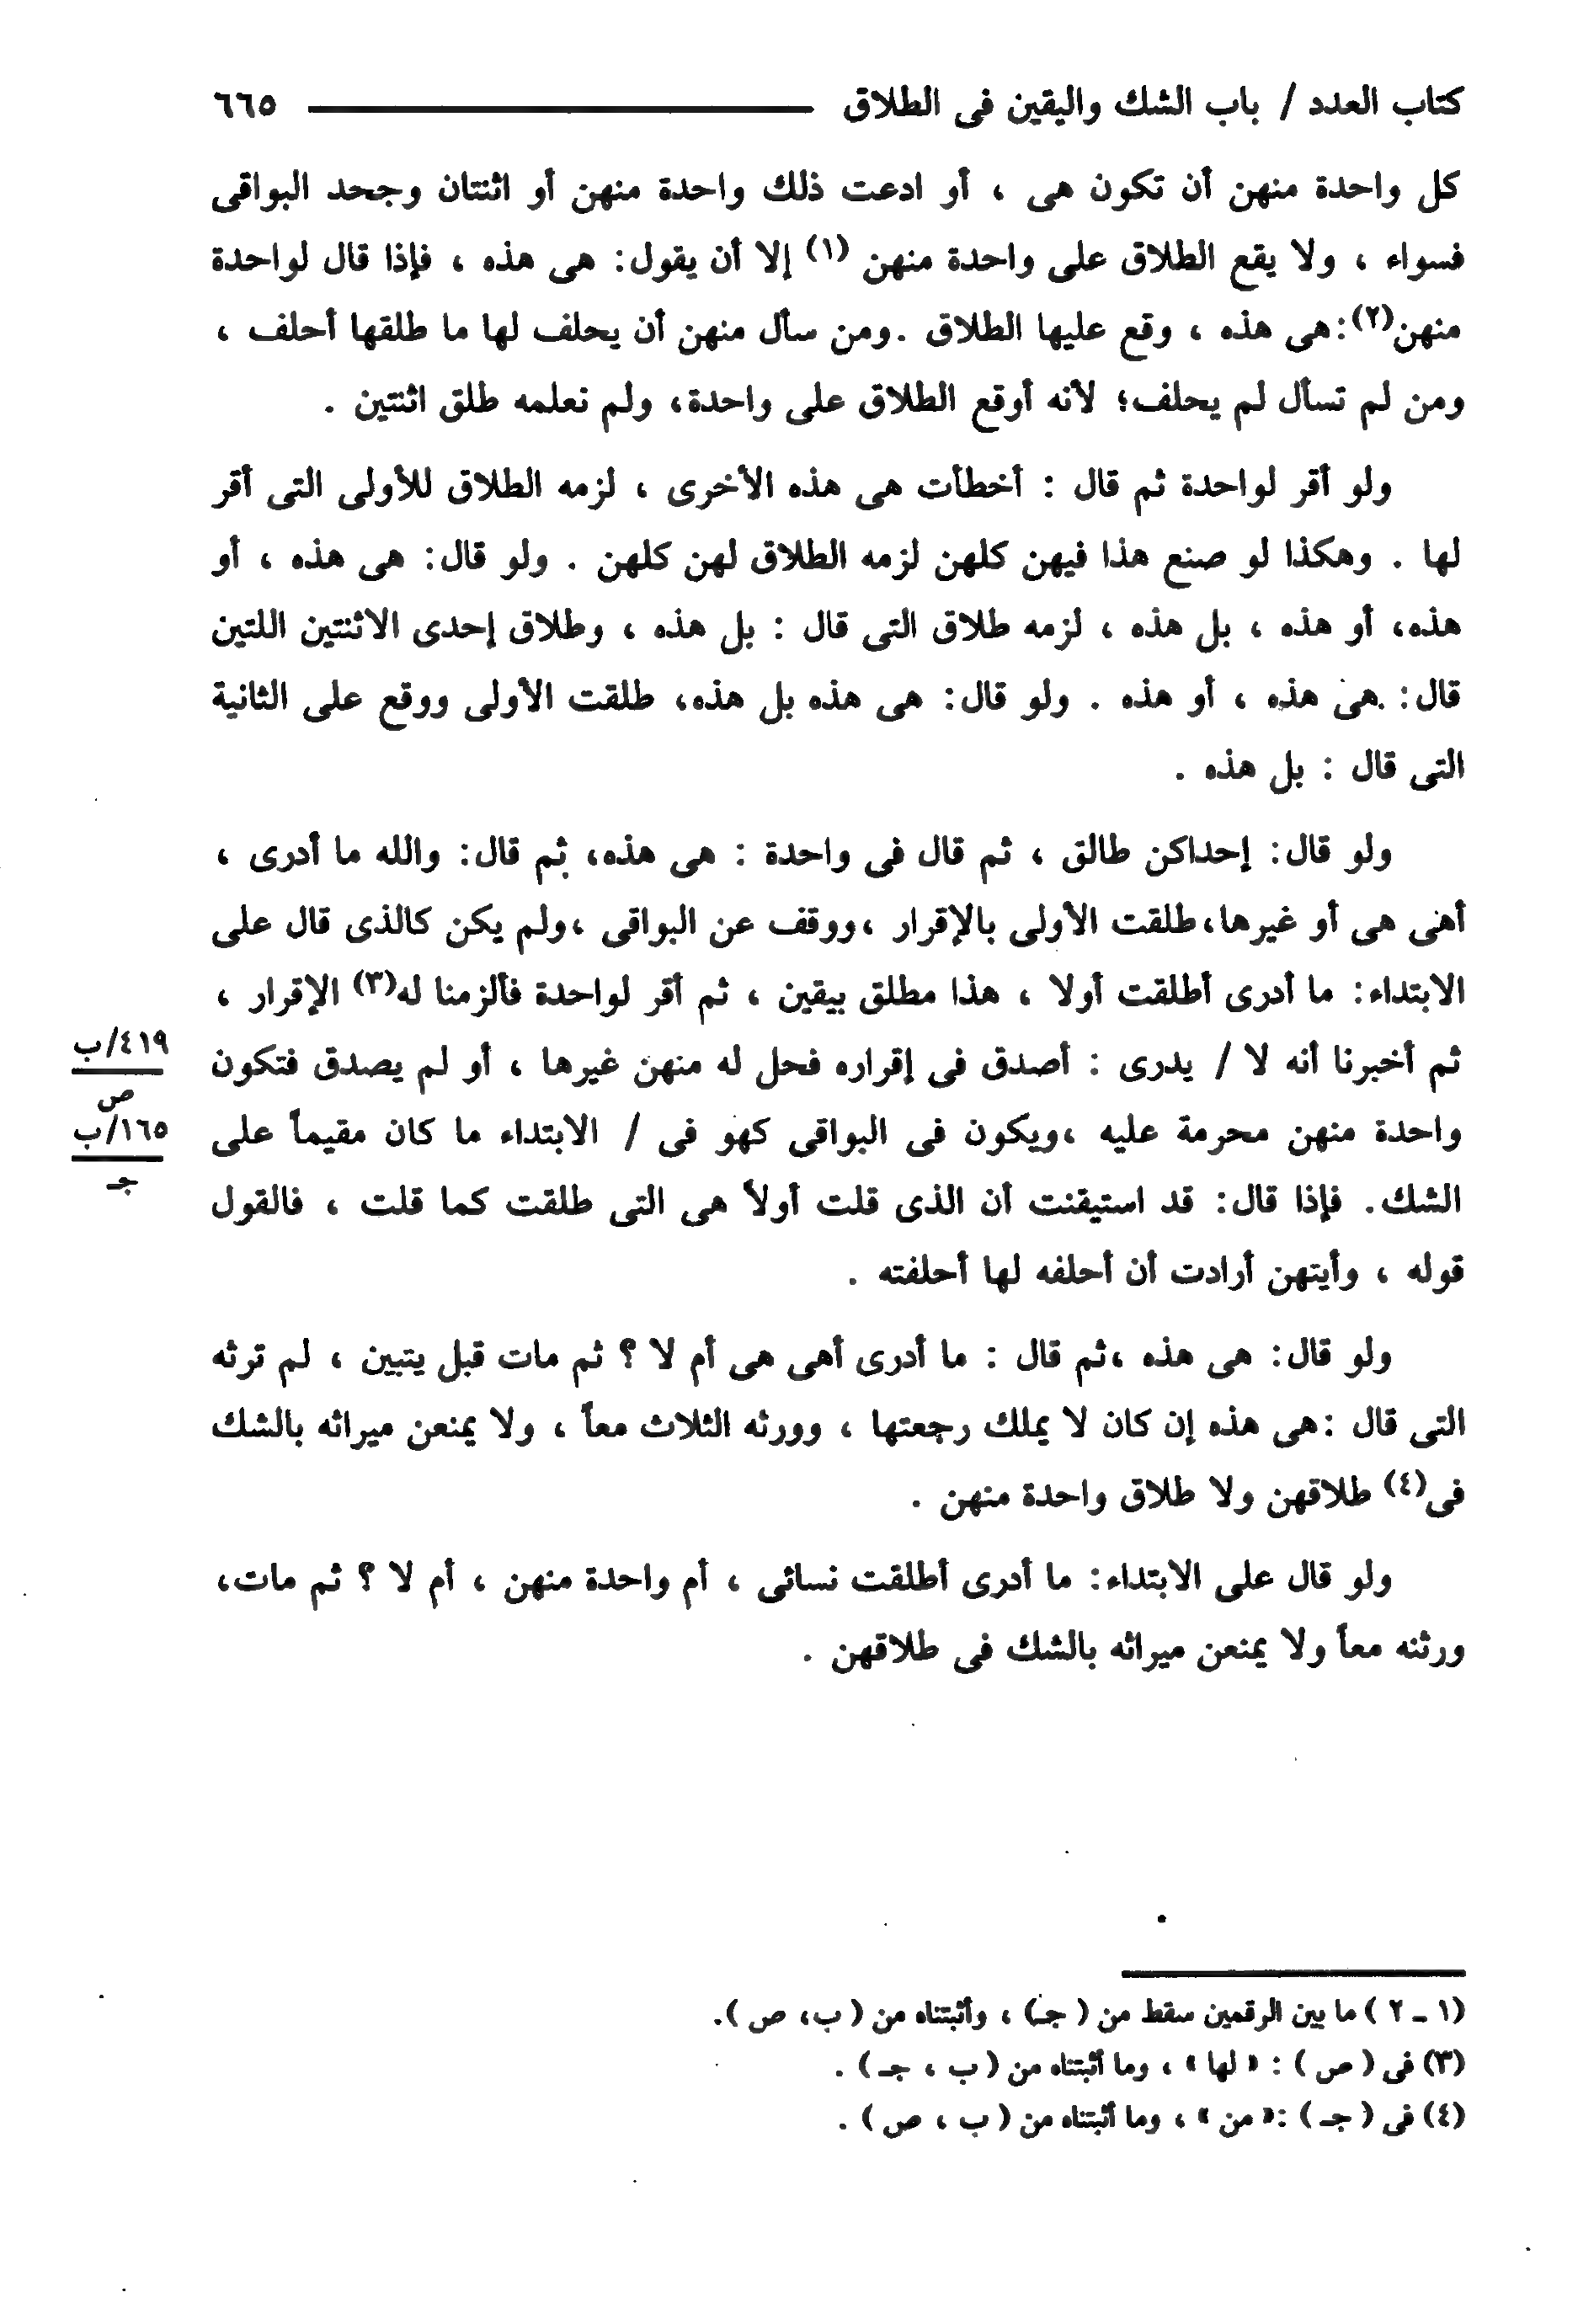 كتاب العدد / باب الشك واليقين فى الطلاق ٦٦٥
كل واحدة منهن أن تكون هى ، أو ادعت ذلك واحدة منهن أو اثنتان وجحد البواقى
فسواء ، ولا يقع الطلاق على واحدة منهن (١) إلا أن يقول: هى هذه ، فإذا قال لواحدة
منهن(٢):هى هذه ، وقع عليها الطلاق .ومن سأل منهن أن يحلف لها ما طلقها أحلف ،
ومن لم تسأل لم يحلف؛ لأنه أوقع الطلاق على واحدة، ولم نعلمه طلق اثنتين .
ولو أقر لواحدة ثم قال : أخطأت هى هذه الأخرى ، لزمه الطلاق للأولى التى أقر
لها . وهكذا لو صنع هذا فيهن كلهن لزمه الطلاق لهن كلهن . ولو قال: هى هذه ، أو
هذه، أو هذه ، بل هذه ، لزمه طلاق التى قال : بل هذه ، وطلاق إحدى الاثنتين اللتين
قال: هى هذه ، أو هذه . ولو قال: هى هذه بل هذه، طلقت الأولى ووقع على الثانية
التى قال : بل هذه .
ولو قال: إحداكن طالق ، ثم قال فى واحدة : هى هذه، ثم قال: والله ما أدرى ،
أهى هى أو غيرها،طلقت الأولى بالإقرار ،ووقف عن البواقى ،ولم يكن كالذى قال على
الابتداء: ما أدرى أطلقت أولا ، هذا مطلق بيقين ، ثم أقر لواحدة فألزمنا له(٣) الإقرار ،
ثم أخبرنا أنه لا / يدرى : أصدق فى إقراره فحل له منهن غيرها ، أو لم يصدق فتكون
٤١٩/ب
ص
واحدة منهن محرمة عليه ،ويكون فى البواقى كهو فى / الابتداء ما كان مقيماً على
١٦٥/ب
جـ
الشك. فإذا قال: قد استيقنت أن الذى قلت أولاً هى التى طلقت كما قلت ، فالقول
قوله ، وأيتهن أرادت أن أحلفه لها أحلفته .
ولو قال: هى هذه ،ثم قال : ما أدرى أهى هى أم لا ؟ ثم مات قبل يتبين ، لم ترثه
التى قال :هى هذه إن كان لا يملك رجعتها ، وورثه الثلاث معاً ، ولا يمنعن ميراثه بالشك
فى(٤) طلاقهن ولا طلاق واحدة منهن .
ولو قال على الابتداء: ما أدرى أطلقت نسائى ، أم واحدة منهن ، أم لا ؟ ثم مات،
ورثنه معاً ولا يمنعن ميراثه بالشك فى طلاقهن .
(١ ـ ٢ ) ما بين الرقمين سقط من ( جـ) ، وأثبتناه من ( ب، ص ).
(٣) فى ( ص ) : « لها » ، وما أثبتناه من ( ب ، جـ ) .
(٤) فى ( جـ ) :« من » ، وما أثبتناه من ( ب ، ص ) .